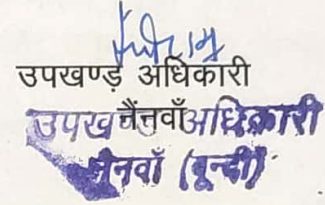 उपखण्ड़ अधिकारी
नैंनवाँ
उपखण्ड अधिकारी
नैनवाँ (बून्दी)